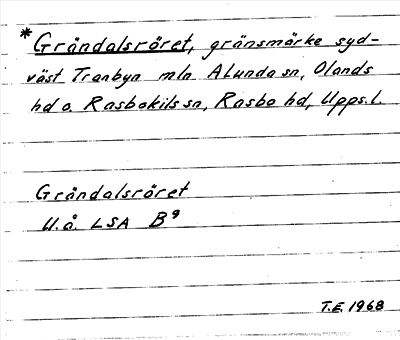 *Gråndalsröret, gränsmärke syd-
väst Tranbyn mln Alunda sn, Olands
hd o. Rasbokils sn, Rasbo hd, Upps.l.
Gråndalsröret
U.å. LSA B⁹
T.E. 1968